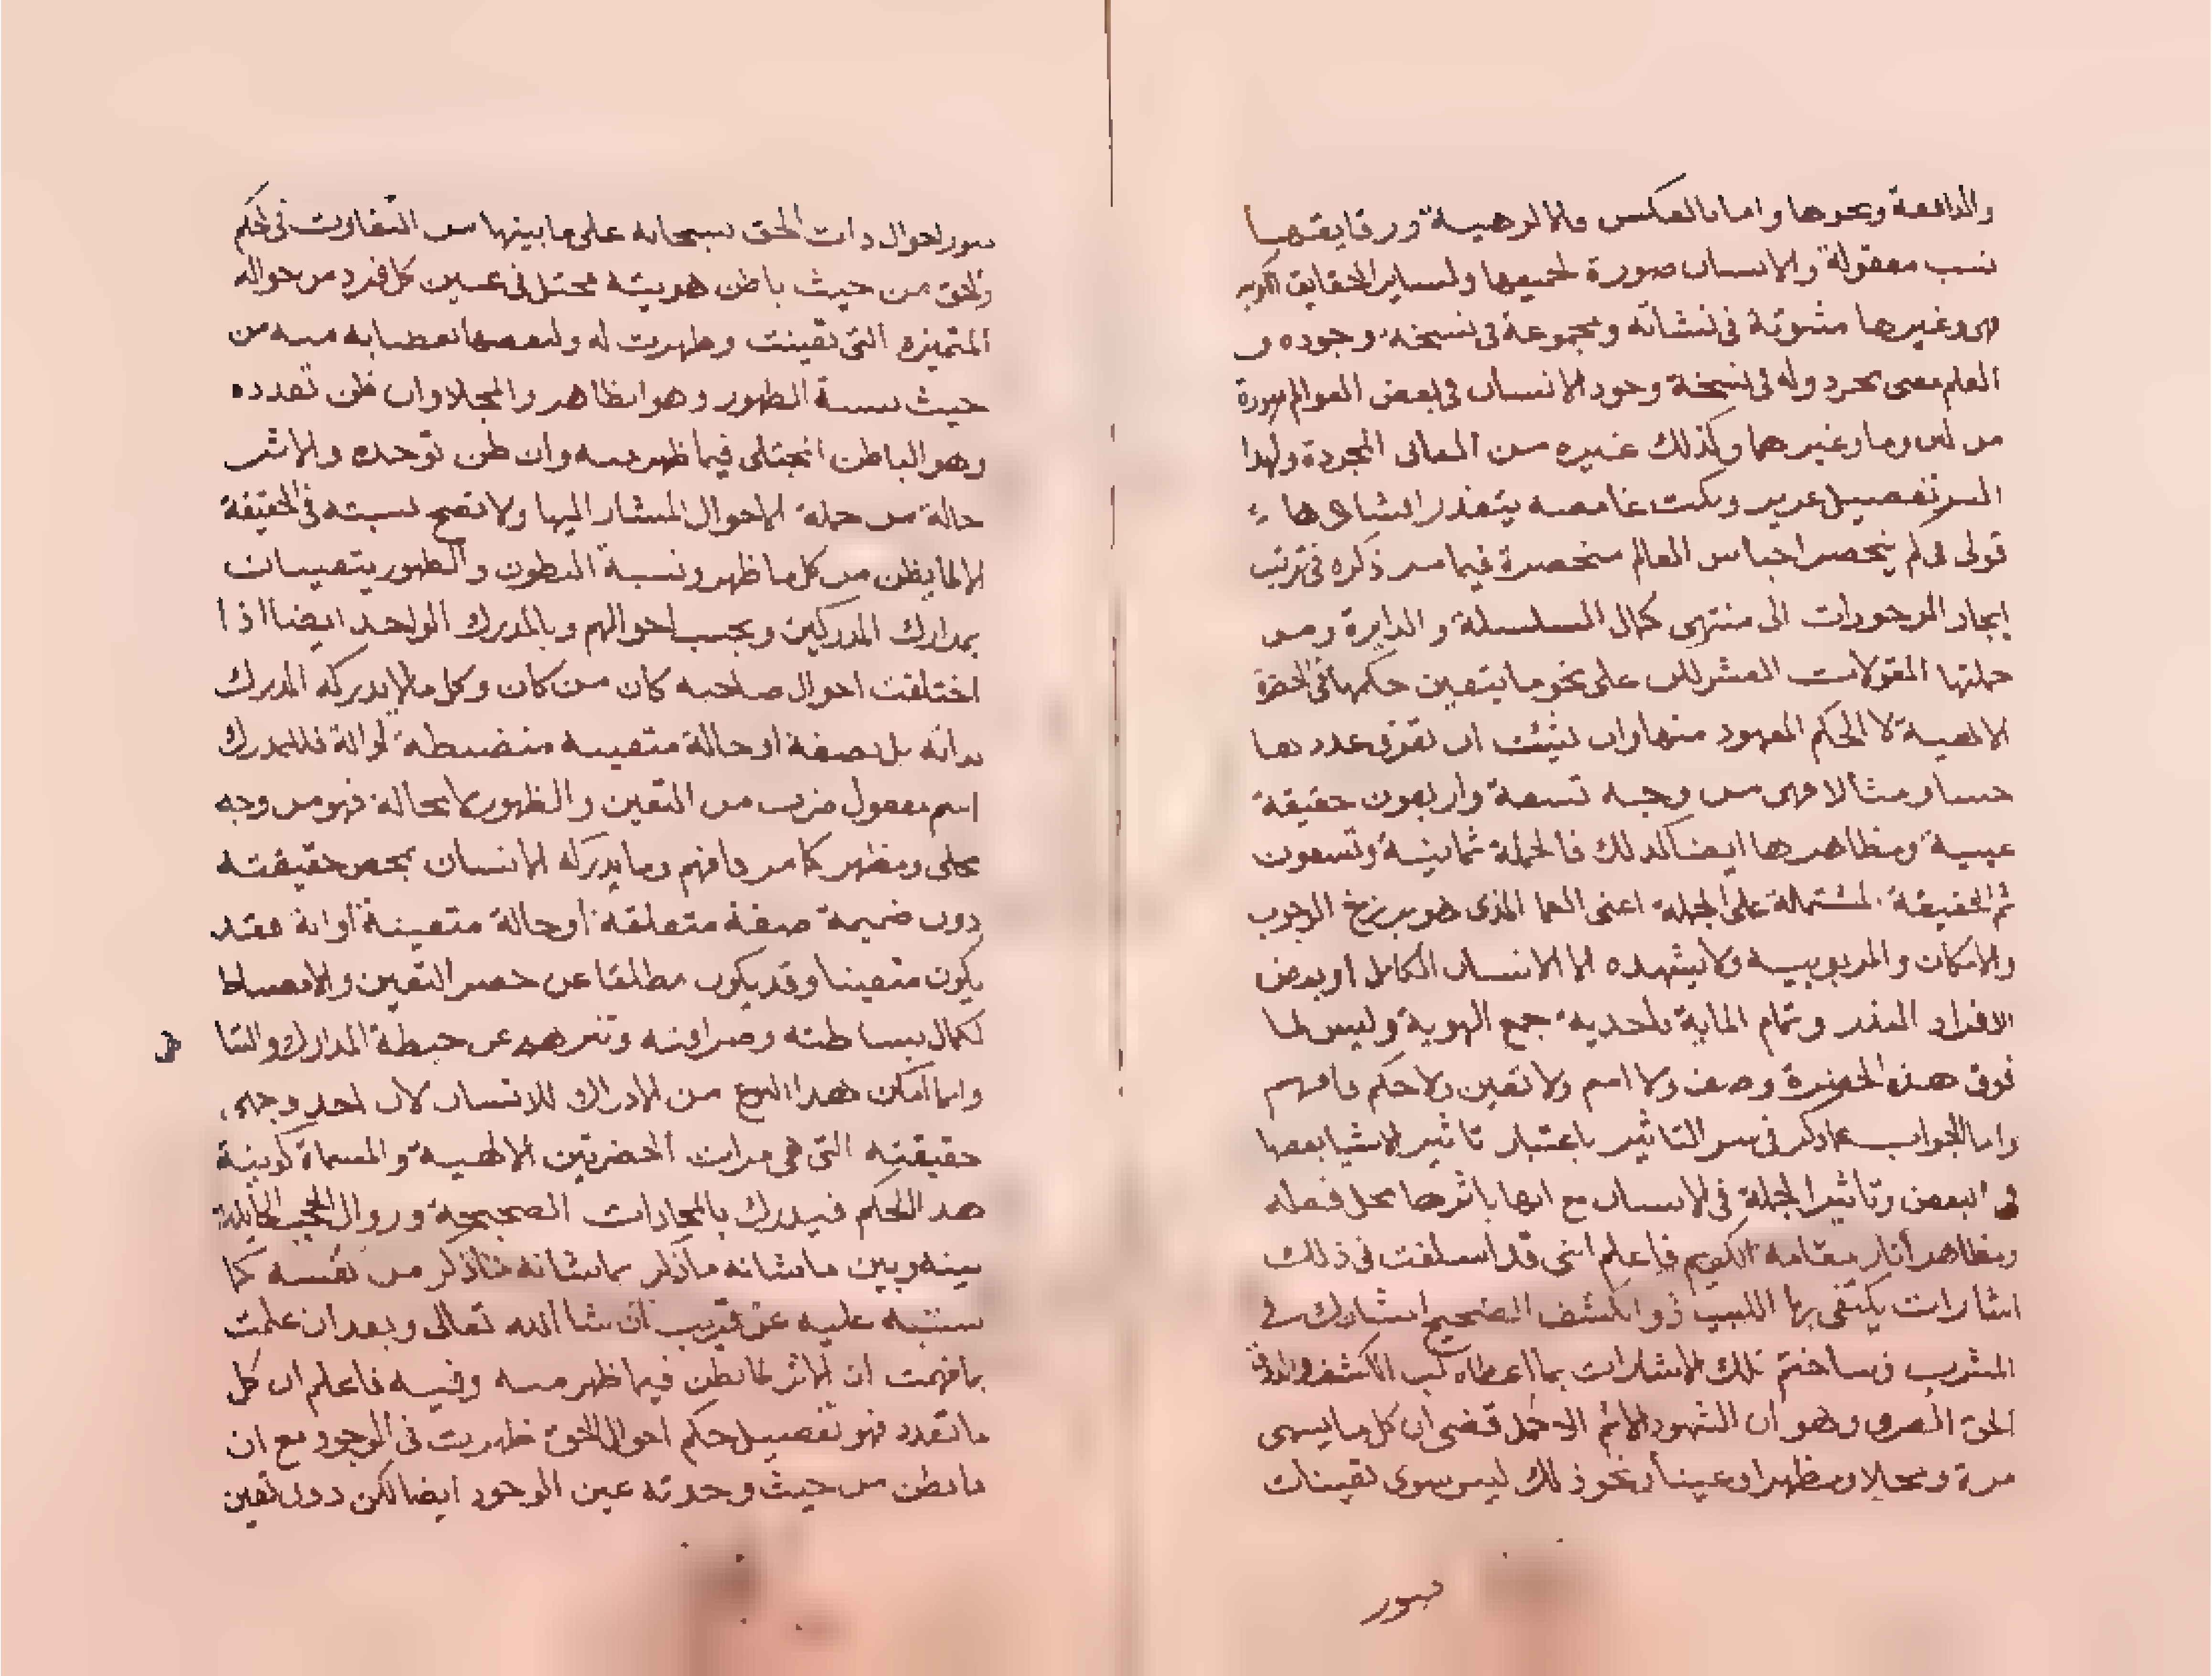 والدافعة ونحوها واما بالعكس والالوهية ورقايقها
نسب معقولة والانسان صورة لجميعها ولساير الحقايق
فهي وغيرها مشوبة في نشاته ومجموعة في نسخة وجوده و
العلم معنى مجرد وله في نسخة وجود الانسان في بعض العوالم صورة
من لبن وما وغيرهما وكذلك غيره من المعاني المجردة ولهذا
السر تفصيل عزيز ونكت غامضه يتعذر افشاوها
قولي لم ينحصر اجناس العالم منحصرة فيما مر ذكره في ترتيب
ايجاد الموجودات الى منتهى كمال السلسلة والدايرة ومن
جملتها المقولات العشر لكن على نحو ما يتعين حكمها في الحضرة
الالهية لا الحكم المعهود منها وان شئت ان تعرف عددها
حسا ومثالا فهي من وجه تسعة واربعون حقيقة
غيبية ومظاهرها ايضا كذلك فالجملة ثمانية وتسعون
ثم الحقيقة المشتملة على الجملة اعني العما الذي هو برزخ الوجوب
والامكان والمربوبية ولا يشهده الا الانسان الكامل او بعض
الافراد الندر وتمام الماية باحدية جمع الهوية وليس لما
فوق هذه الحضرة وصف ولا اسم ولا تعين ولا حكم فافهم
واما الجواب عما ذكر في سر التاثير باعتبار تاثير الاشيا بعضها
في البعض وتاثير الجملة في الانسان مع انها باثرها محل فعله
ومظاهر اثار مقامه الكريم فاعلم انني قد اسلفت في ذلك
اشارات يكتفي بها اللبيب ذو الكشف الصحيح المشارك في
المشرب وساختم تلك الاشارات بما اعطاه الكشف والذوق
الحق الصرف وهو ان الشهود الاتم الاكمل قضى ان كل ما يسمى
مرة ومجلا ومظهرا وعينا ونحو ذلك ليس سوى تعينات
صور
صور احوال ذات الحق سبحانه على ما بينها من التفاوت في الحكم
والحق من حيث باطن هويته مجتل في عين كل فرد من احواله
المتميزة التي تعينت وظهرت له ولبعضها بعضا به منه من
حيث نسبة الظهور وهو الظاهر والمجلا وان ظن تعدده
وهو الباطن المجتلى فيما ظهر منه وان ظن توحده والاثر
حالة من جملة الاحوال المشار اليها ولا تصح نسبته في الحقيقة
الا لما بطن من كل ما ظهر ونسبة البطون والظهور يتعينان
بمدارك المدركين وبحسب احوالهم وبالمدرك الواحد ايضا اذا
اختلفت احوال صاحبه كان من كان وكل ما لا يدركه المدرك
بذاته بل بصفة او حالة متعينه منضبطة او الة فللمدرك
اسم مفعول ضرب من التعين والظهور لا محالة فهو من وجه
مجلى ومظهر كما مر فافهم وما يدركه الانسان بمحض حقيقته
دون ضميمة صفة متعلقة او حالة متعينة او الة فقد
يكون متعينا وقد يكون مطلقا عن حصر التعين والانضباط
لكمال بساطته وصرافته وتنزهه عن حيطة المدارك والتنا
هي
وانما امكن هذا النوع من الادراك للانسان لان احد وجهي
حقيقته التي هي مرات الحضرتين الالهية والمسماة كونية
هذا الحكم فيدرك بالمحاذات الصحيحة وزوال الحجب الحايلة
بينه وبين ما شانه ما ذكر بما شانه ما ذكر من نفسه كما
سننبه عليه عن قريب ان شا الله تعالى وبعد ان علمت
ما فهمت ان الاثر لما بطن فيما ظهر منه وفيه فاعلم ان كل
ما تعدد فهو تفصيل حكم احوال الحق ظهرت في الوجود مع ان
ما بطن من حيث وحدته عين الوجود ايضا لكن دون تعين